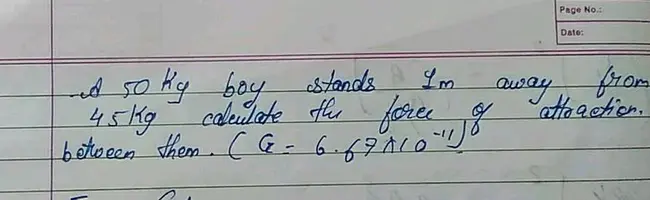 Page No.:
Date:
A 50 Kg boy stands 1m away from
45Kg calculate the force of attraction.
between them. (G = 6.67×10⁻¹¹)